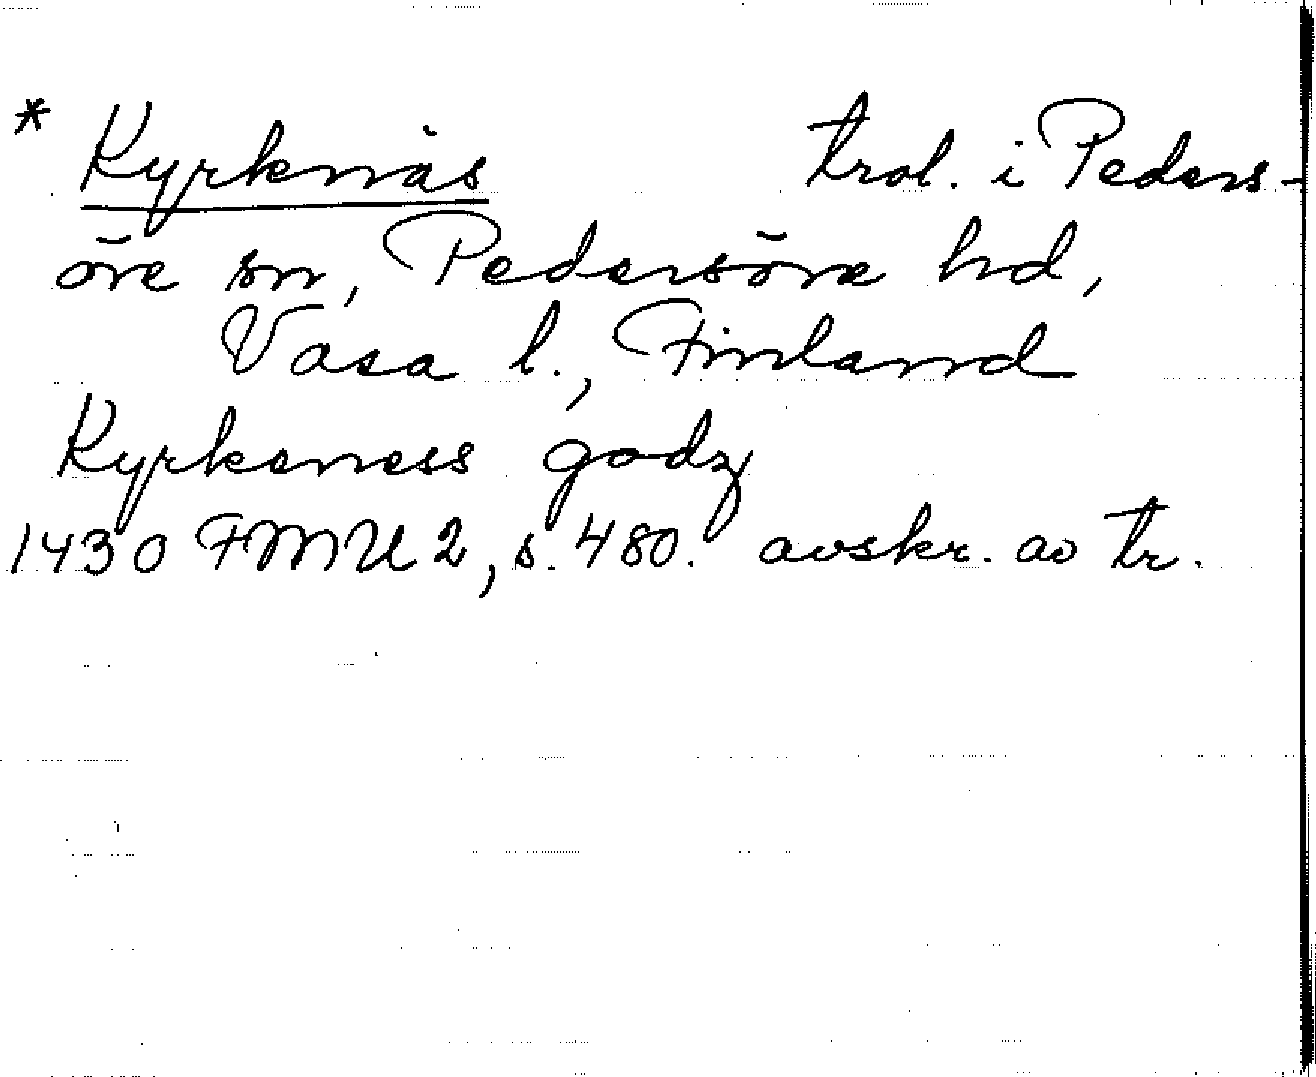 * Kyrknäs trol. i Peders-
öre sn, Pedersöre hd,
Vasa l., Finland
Kyrkeness godz
1430 FMU 2, s. 480. avskr. av tr.